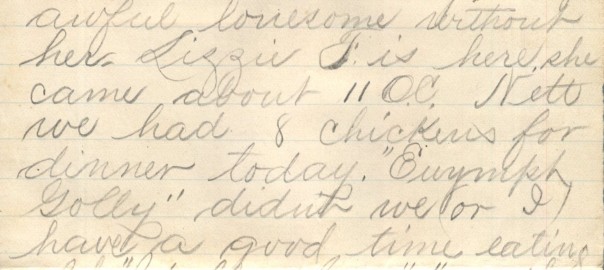 awful lonesome without
her. Lizzie F. is here, she
came about 11 O.C. Nett
we had 8 chickens for
dinner today. "Euymph
Golly" didn't we (or I)
have a good time eating